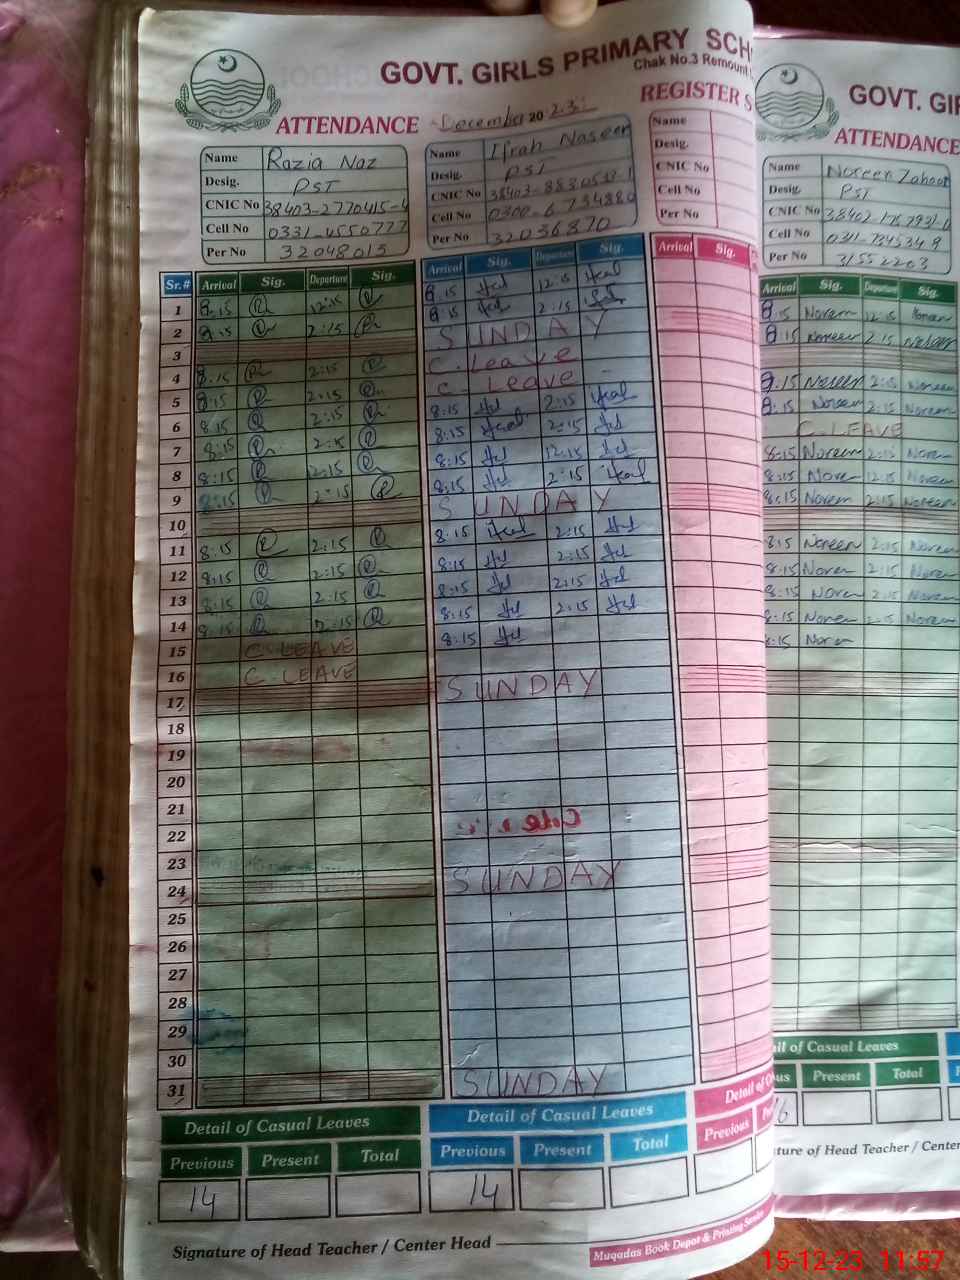 GOVT. GIRLS PRIMARY SCH
Chak No.3 Remount
REGISTER S
ATTENDANCE December 2023
Name Razia Naz
Desig. PST
CNIC No 38403-2770415-4
Cell No 0331-4550777
Per No 32048015
Name Ifrah Naseer
Desig. PST
CNIC No
Cell No 0300-6734880
Per No 32036870
Name
Desig.
CNIC No
Cell No
Per No
Sr.# Arrival Sig. Departure Sig. Arrival Sig. Departure Sig. Arrival Sig.
1 8:15 12:15 8:15 12:15
2 8:15 2:15 8:15 2:15
3 SUNDAY
4 8:15 2:15 C. Leave
5 8:15 2:15 C. Leave
6 8:15 2:15 8:15 2:15
7 8:15 2:15 8:15 2:15
8 8:15 2:15 8:15 12:15
9 8:15 2:15 8:15 2:15
10 SUNDAY
11 8:15 2:15 8:15 2:15
12 8:15 2:15 8:15 2:15
13 8:15 2:15 8:15 2:15
14 8:15 2:15 8:15 2:15
15 C. LEAVE 8:15
16 C. LEAVE
17 SUNDAY
18
19
20
21
22
23
24 SUNDAY
25
26
27
28
29
30
31 SUNDAY
Detail of Casual Leaves Detail of Casual Leaves
Previous Present Total Previous Present Total Previous
14 14
Signature of Head Teacher / Center Head
Muqadas Book Depot & Printing Service
GOVT. GIR
ATTENDANCE
Name Noreen Zahoor
Desig. PST
CNIC No
Cell No
Per No 31552203
Arrival Sig. Departure Sig.
8:15 Noreen 12:15 Noreen
8:15 Noreen 2:15 Noreen
8:15 Noreen 2:15 Noreen
8:15 Noreen 2:15 Noreen
C. LEAVE
8:15 Noreen 2:15 Noreen
8:15 Noreen 12:15 Noreen
8:15 Noreen 2:15 Noreen
8:15 Noreen 2:15 Noreen
8:15 Noreen 2:15 Noreen
8:15 Noreen 2:15 Noreen
8:15 Noreen 2:15 Noreen
8:15 Noreen
ail of Casual Leaves
us Present Total
ture of Head Teacher / Center
15-12-23 11:57